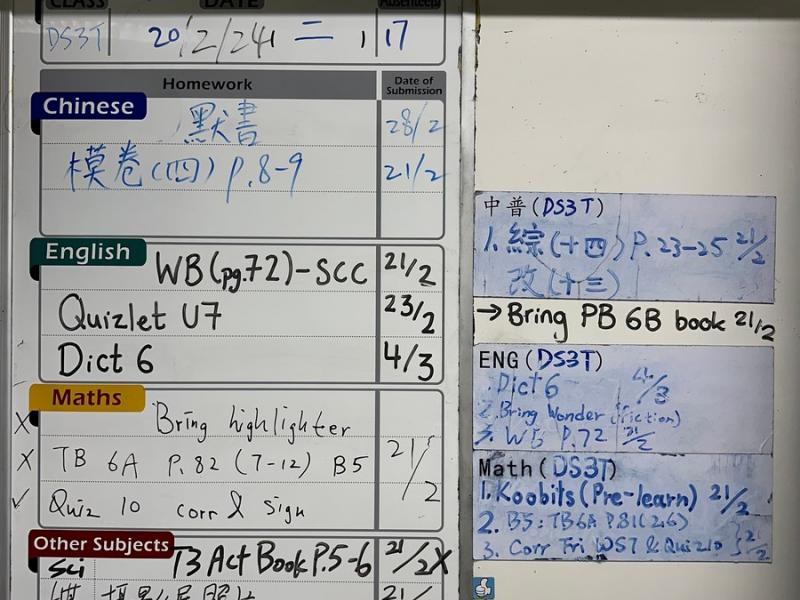 CLASS DATE Absentees
DS3T 20/2/24 二 17
Homework Date of Submission
Chinese
默書 28/2
模卷(四) P.8-9 21/2
English
WB(pg.72)-SCC 21/2
Quizlet U7 23/2
Dict 6 4/3
Maths
X Bring highlighter
X TB 6A P.82 (7-12) B5 21/2
✓ Quiz 10 corr & sign
Other Subjects
sci T3 Act Book P.5-6 21/2 X
照片 21/
中普(DS3T)
1. 綜(十四) P.23-25 21/2
改(十三)
→ Bring PB 6B book 21/2
ENG (DS3T)
1. Dict 6 4/3
2. Bring Wonder (fiction)
3. WB P.72 21/2
Math (DS3T)
1. Koobits (Pre-learn) 21/2
2. B5: TB6A P.81(2,6)
3. Corr Fri WS7 & Quiz10 } 21/2